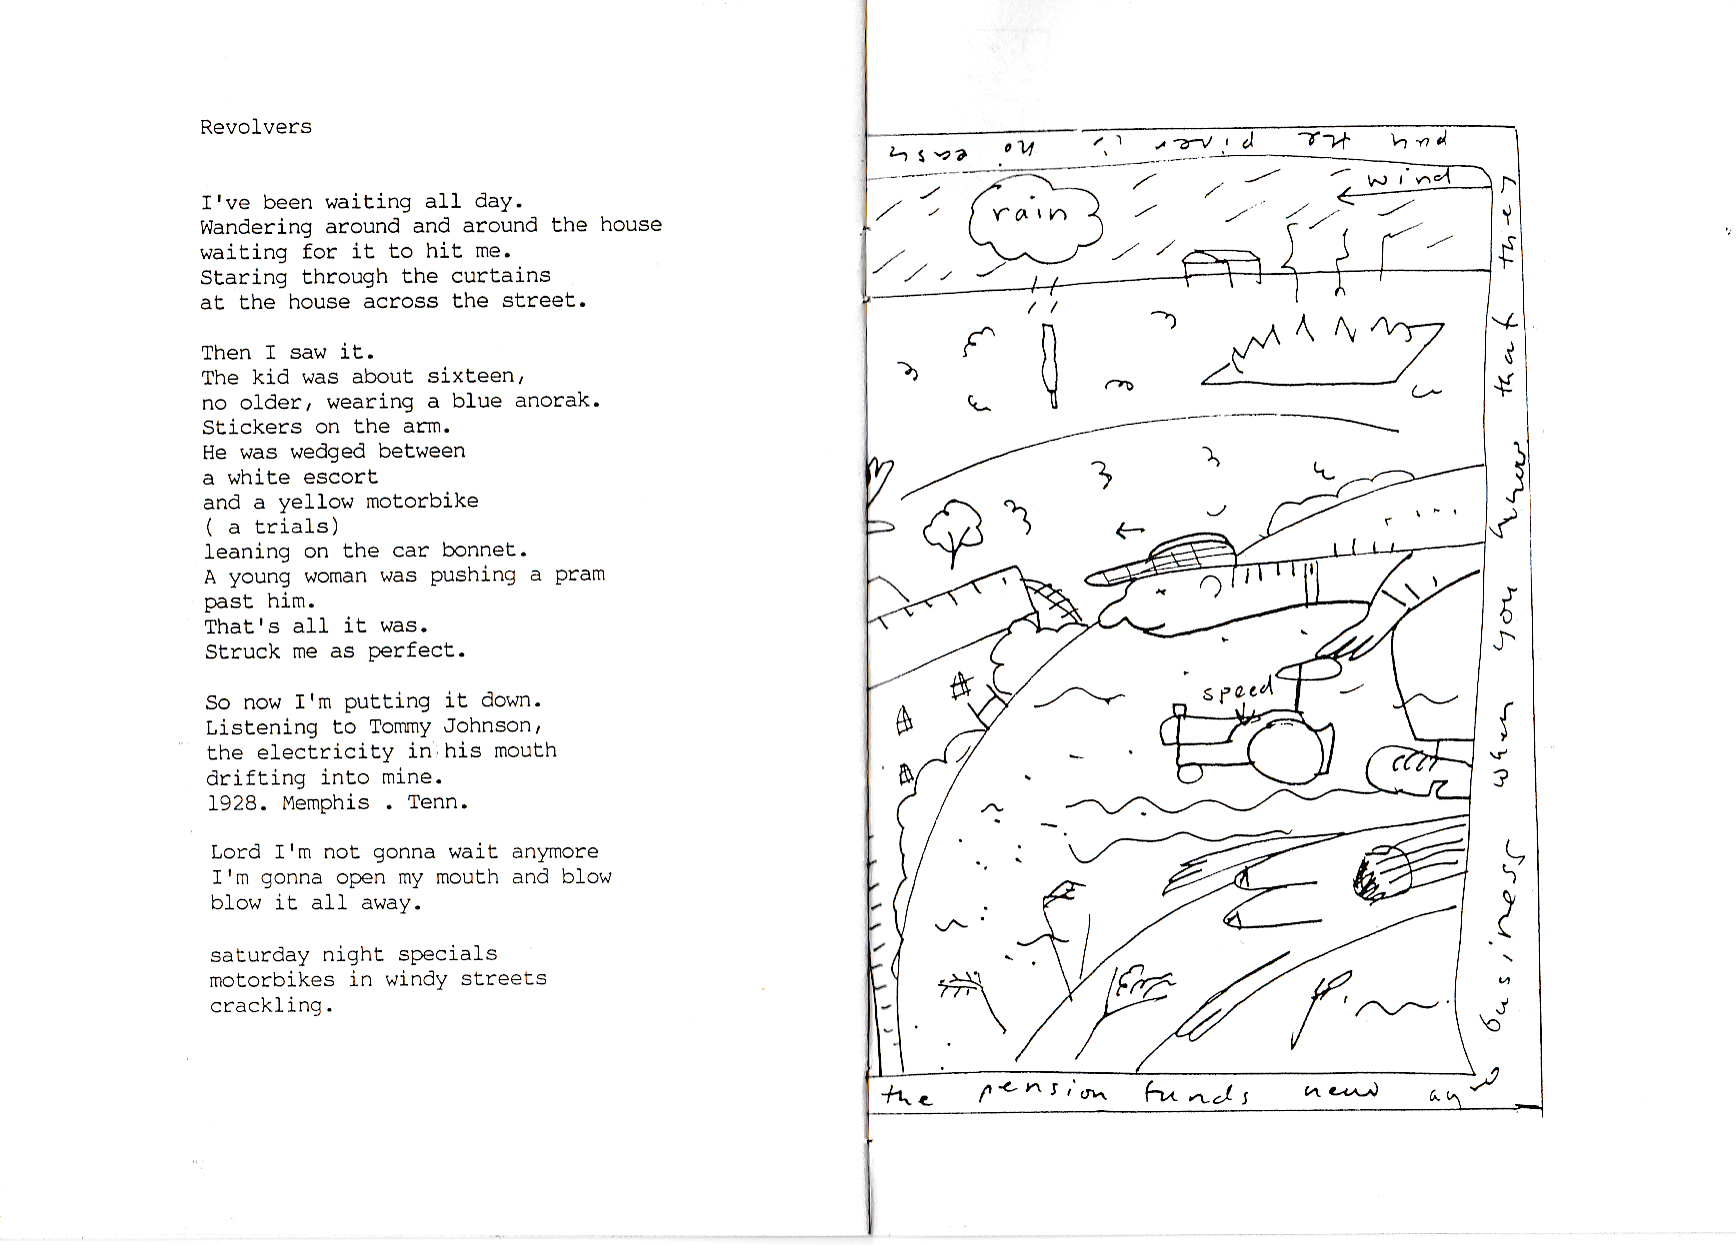 Revolvers
I've been waiting all day.
Wandering around and around the house
waiting for it to hit me.
Staring through the curtains
at the house across the street.
Then I saw it.
The kid was about sixteen,
no older, wearing a blue anorak.
Stickers on the arm.
He was wedged between
a white escort
and a yellow motorbike
( a trials)
leaning on the car bonnet.
A young woman was pushing a pram
past him.
That's all it was.
Struck me as perfect.
So now I'm putting it down.
Listening to Tommy Johnson,
the electricity in his mouth
drifting into mine.
1928. Memphis . Tenn.
Lord I'm not gonna wait anymore
I'm gonna open my mouth and blow
blow it all away.
saturday night specials
motorbikes in windy streets
crackling.
wind
rain
speed
the pension funds
business when you know that they
pay the piper is no easy